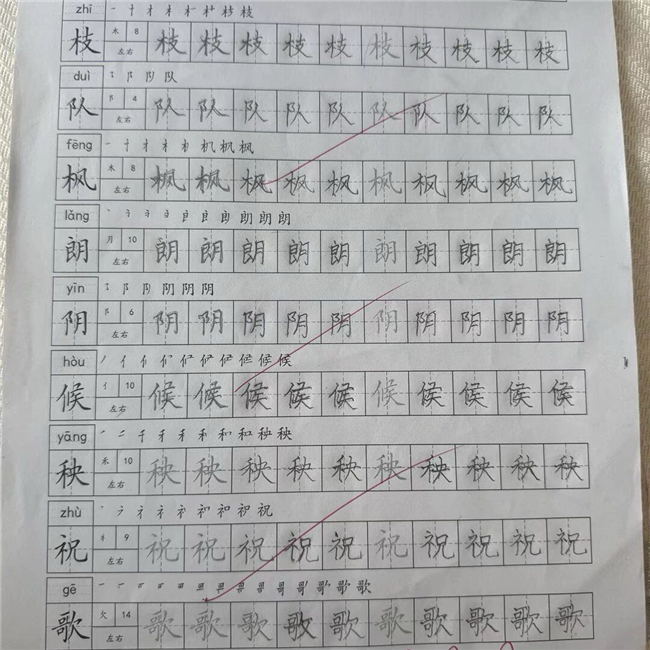 zhī 一 十 才 木 木 杧 枝 枝
枝 木 8 左右 枝 枝 枝 枝 枝 枝 枝 枝 枝 枝
duì 阝 队 队
队 阝 4 左右 队 队 队 队 队 队 队 队 队 队
fēng 一 十 才 木 机 枫 枫
枫 木 8 左右 枫 枫 枫 枫 枫 枫 枫 枫 枫 枫
lǎng 朗 朗 朗
朗 月 10 左右 朗 朗 朗 朗 朗 朗 朗 朗 朗 朗
yīn 阝 阴 阴 阴
阴 阝 6 左右 阴 阴 阴 阴 阴 阴 阴 阴 阴 阴
hòu 丿 亻 候 候
候 亻 10 左右 候 候 候 候 候 候 候 候 候 候
yāng 一 二 千 禾 禾 秧 秧
秧 禾 10 左右 秧 秧 秧 秧 秧 秧 秧 秧 秧 秧
zhù 礻 祝 祝
祝 礻 9 左右 祝 祝 祝 祝 祝 祝 祝 祝 祝 祝
gē 一 哥 哥 歌 歌 歌
歌 欠 14 左右 歌 歌 歌 歌 歌 歌 歌 歌 歌 歌